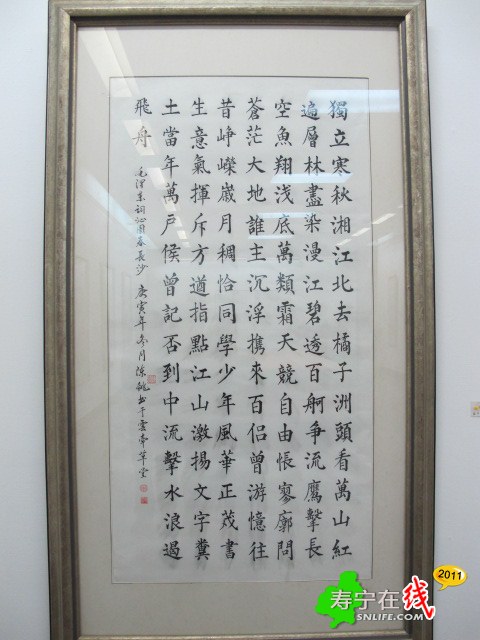 獨立寒秋湘江北去橘子洲頭看萬山紅
遍層林盡染漫江碧透百舸争流鷹擊長
空魚翔浅底萬類霜天競自由悵寥廓問
蒼茫大地誰主沉浮携來百侣曾游憶往
昔崢嶸歲月稠恰同學少年風華正茂書
生意氣揮斥方遒指點江山激揚文字糞
土當年萬戶侯曾記否到中流擊水浪遏
飛舟
毛澤东詞沁園春長沙 庚寅年冬月陳书于雲草堂
2011
寿宁在线
SNLIFE.COM